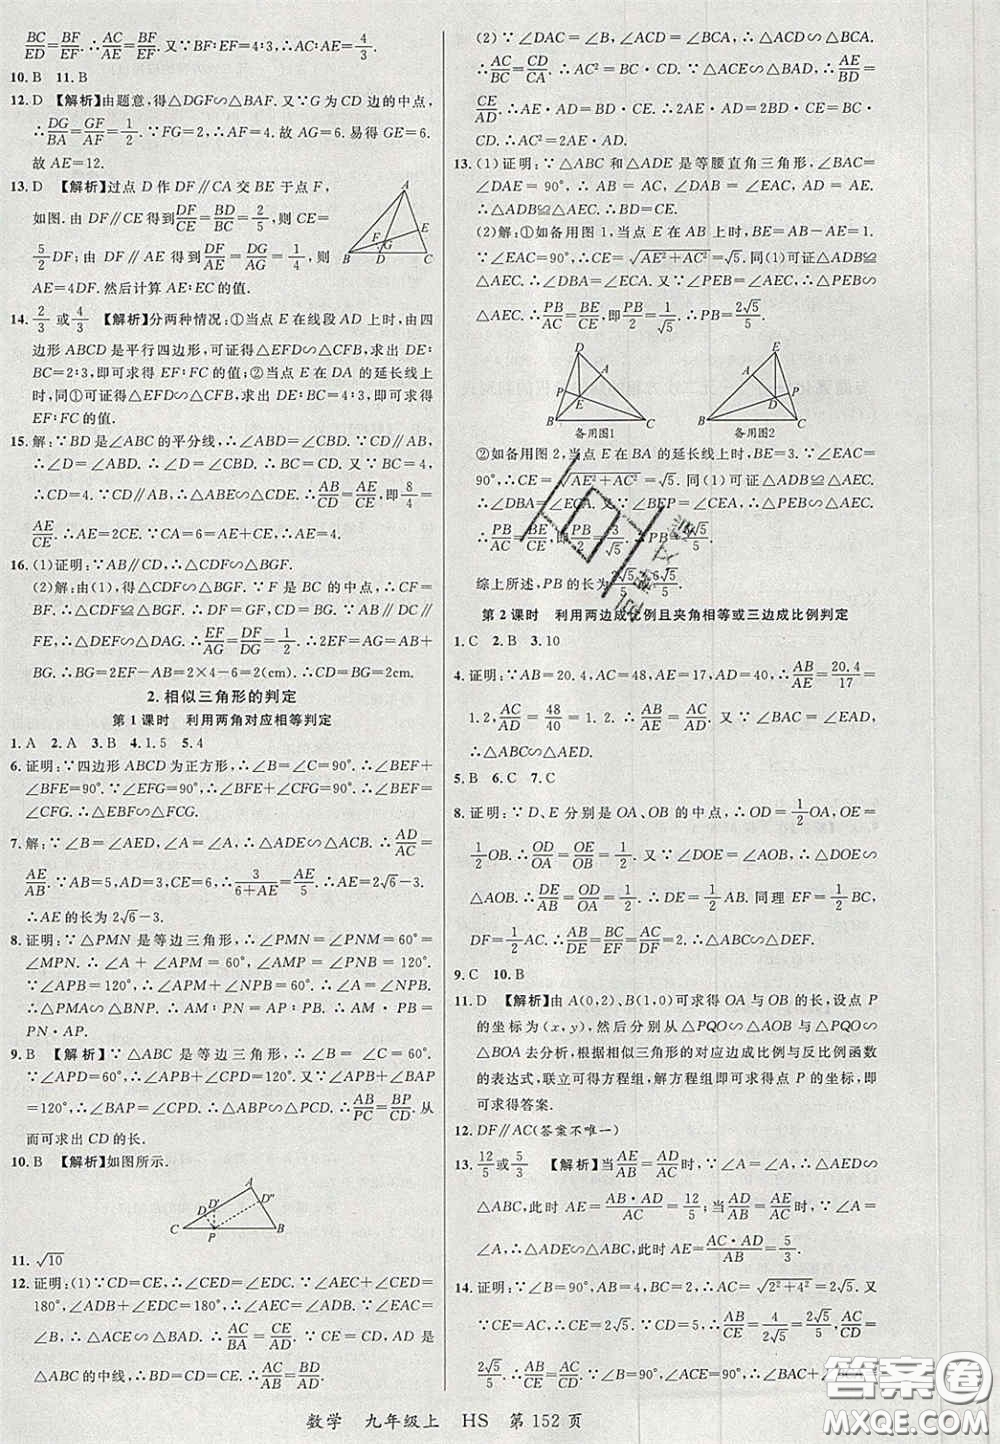 BC/ED=BF/EF.∴AC/AE=BF/EF.又∵BF∶EF=4∶3,∴AC/AE=4/3.
10. B 11. B
12. D 【解析】由题意,得△DGF∽△BAF.又∵G为CD边的中点,
∴DG/BA=GF/AF=1/2.∵FG=2,∴AF=4.故AG=6.易得GE=6.
故AE=12.
13. D 【解析】过点D作DF∥CA交BE于点F,
如图.由DF∥CE得到DF/CE=BD/BC=2/5,则CE=
5/2DF;由DF∥AE得到DF/AE=DG/AG=1/4,则
AE=4DF.然后计算AE∶EC的值.
A
F E
G
B D C
14. 2/3或4/3 【解析】分两种情况:①当点E在线段AD上时,由四
边形ABCD是平行四边形,可证得△EFD∽△CFB,求出DE∶
BC=2∶3,即可求得EF∶FC的值;②当点E在DA的延长线上
时,同①可证得△EFD∽△CFB,求出DE∶BC=4∶3,即可求得
EF∶FC的值.
15. 解:∵BD是∠ABC的平分线,∴∠ABD=∠CBD.∵AB∥CD,
∴∠D=∠ABD.∴∠D=∠CBD.∴BC=CD.∵BC=4,
∴CD=4.∵AB∥CD,∴△ABE∽△CDE.∴AB/CD=AE/CE.即8/4=
AE/CE.∴AE=2CE.又∵CA=6=AE+CE,∴AE=4.
16. (1)证明:∵AB∥CD,∴△CDF∽△BGF.
(2)解:由(1),得△CDF∽△BGF.又∵F是BC的中点,
∴△CDF≌△BGF.∴DF=FG,CD=BG.又∵EF∥CD,AB∥
CD,∴EF∥AG.∴△DEF∽△DAG.∴EF/AG=DF/DG=1/2.∴AG=
2EF=AB+BG.∴BG=2EF-AB=2×4-6=2(cm).∴CD=
BG=2 cm.
2. 相似三角形的判定
第1课时 利用两角对应相等判定
1. A 2. A 3. B 4. 1.5 5. 4
6. 证明:∵四边形ABCD为正方形,∴∠B=∠C=90°.∴∠BEF+
∠BFE=90°.∵∠GFE=90°,∴∠BFE+∠GFC=90°.∴∠BEF=
∠GFC.∴△EBF∽△FCG.
7. 解:∵∠B=∠AED,∠A=∠A,∴△ADE∽△ACB.∴AD/AC=
AE/AB.∵AB=5,AD=3,CE=6,∴3/(6+AE)=AE/5.∴AE=2√6-3.
∴AE的长为2√6-3.
8. 证明:∵△PMN是等边三角形,∴∠PMN=∠PNM=60°=
∠MPN.∴∠A+∠APM=60°,∠AMP=∠PNB=120°.
∵∠APB=120°,∴∠APM+∠NPB=60°.∴∠A=∠NPB.
∴△PMA∽△BNP.∴AM∶PN=AP∶PB.∴AM·PB=
PN·AP.
9. B 【解析】∵△ABC是等边三角形,∴∠B=∠C=60°.
∵∠APD=60°,∴∠APB+∠CPD=120°.又∵∠APB+∠BAP=
120°,∴∠BAP=∠CPD.∴△ABP∽△PCD.∴AB/PC=BP/CD.从
而可求出CD的长.
10. B 【解析】如图所示.
A
D′ D″
D
C P B
11. √10
12. 证明:(1)∵CD=CE,∴∠CED=∠EDC.∵∠AEC+∠CED=
180°,∠ADB+∠EDC=180°,∴∠AEC=∠ADB.∵∠EAC=
∠B,∴△ACE∽△BAD.∴AC/BA=CE/AD.∵CE=CD,AD是
△ABC的中线,∴CE=CD=BD.∴AC/BA=BD/AD.
(2)∵∠DAC=∠B,∠ACD=∠BCA,∴△ACD∽△BCA.
∴AC/BC=CD/CA.∴AC²=BC·CD.∵△ACE∽△BAD,∴AE/BD=
CE/AD.∴AE·AD=BD·CE.∴2AE·AD=2BD·CE=BC·
CD.∴AC²=2AE·AD.
13. (1)证明:∵△ABC和△ADE是等腰直角三角形,∠BAC=
∠DAE=90°,∴AB=AC,AD=AE,∠DAB=∠EAC.
∴△ADB≌△AEC.∴BD=CE.
(2)解:①如备用图1,当点E在AB上时,BE=AB-AE=1.
∵∠EAC=90°,∴CE=√(AE²+AC²)=√5.同(1)可证△ADB≌
△AEC.∴∠DBA=∠ECA.∵∠PEB=∠AEC,∴△PEB∽
△AEC.∴PB/AC=BE/CE,即PB/2=1/√5.∴PB=2√5/5.
D
A
P E
B C
备用图1
E
A
D P
B C
备用图2
②如备用图2,当点E在BA的延长线上时,BE=3.∵∠EAC=
90°,∴CE=√(AE²+AC²)=√5.同(1)可证△ADB≌△AEC.
∴∠DBA=∠ECA.又∵∠BEP=∠CEA,∴△PEB∽△AEC.
∴PB/AC=BE/CE,即PB/2=3/√5.∴PB=6√5/5.
综上所述,PB的长为2√5/5或6√5/5.
第2课时 利用两边成比例且夹角相等或三边成比例判定
1. C 2. B 3. 10
4. 证明:∵AB=20.4,AC=48,AE=17,AD=40,∴AB/AE=20.4/17=
1.2,AC/AD=48/40=1.2.∴AB/AE=AC/AD.又∵∠BAC=∠EAD,
∴△ABC∽△AED.
5. B 6. C 7. C
8. 证明:∵D、E分别是OA、OB的中点,∴OD=1/2OA,OE=
1/2OB.∴OD/OA=OE/OB=1/2.又∵∠DOE=∠AOB,∴△DOE∽
△AOB.∴DE/AB=OD/OA=1/2.∴DE=1/2AB.同理EF=1/2BC,
DF=1/2AC.∴DE/AB=EF/BC=DF/AC.∴△ABC∽△DEF.
9. C 10. B
11. D 【解析】由A(0,2)、B(1,0)可求得OA与OB的长,设点P
的坐标为(x,y),然后分别从△PQO∽△AOB与△PQO∽
△BOA去分析,根据相似三角形的对应边成比例与反比例函数
的表达式,联立可得方程组,解方程组即可求得点P的坐标,即
可求得答案.
12. DF∥AC(答案不唯一)
13. 12/5或5/3 【解析】当AE/AB=AD/AC时,∵∠A=∠A,∴△AED∽
△ABC,此时AE=AB·AD/AC=12/5;当AD/AB=AE/AC时,∵∠A=
∠A,∴△ADE∽△ABC,此时AE=AC·AD/AB=5/3.
14. 证明:∵∠B=90°,AB=4,BC=2,∴AC=√(2²+4²)=2√5.又
∵CE=AC,∴CE=2√5.∵CD=5,∴AB/CE=4/2√5=2√5/5,AC/CD=
2√5/5.∴AB/CE=AC/CD.∵∠B=90°,∠ACE=90°,∴∠BAC+∠BCA=
数学 九年级上 HS 第152页
答案圈
MXQE.COM